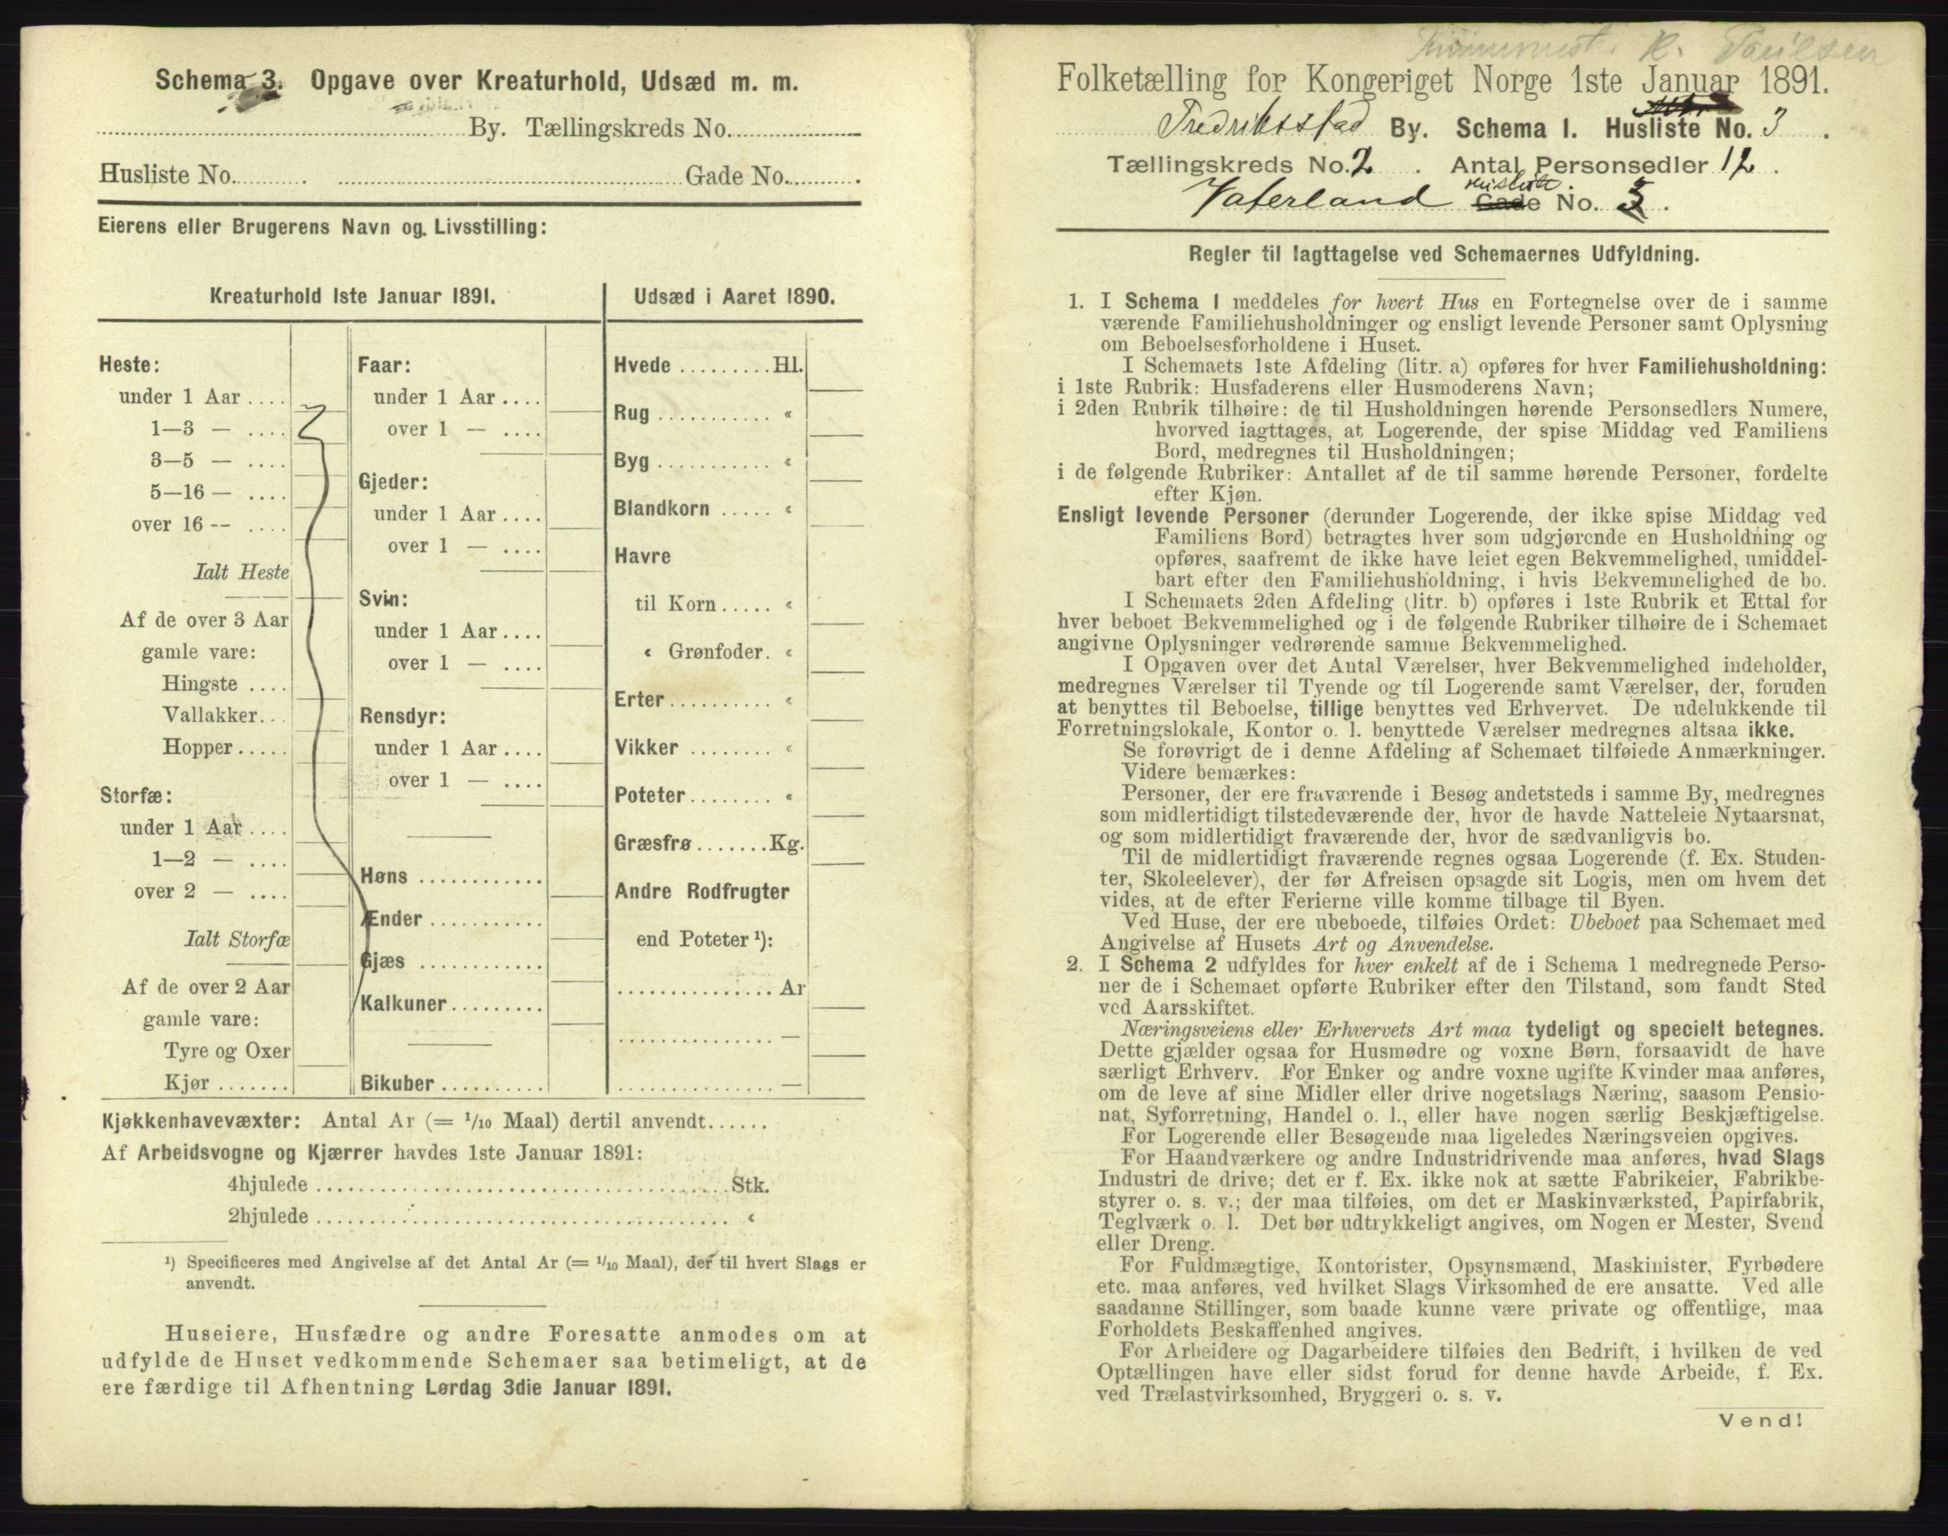 Schema 3. Opgave over Kreaturhold, Udsæd m. m.
By. Tællingskreds No.
Husliste No. Gade No.
Eierens eller Brugerens Navn og Livsstilling:
Kreaturhold 1ste Januar 1891.
Heste:
under 1 Aar ....
1—3 — ....
3—5 — ....
5—16 — ....
over 16 -- ....
Ialt Heste
Af de over 3 Aar
gamle vare:
Hingste ....
Vallakker...
Hopper.....
Storfæ:
under 1 Aar ....
1—2 — ....
over 2 — ....
Ialt Storfæ
Af de over 2 Aar
gamle vare:
Tyre og Oxer
Kjør .......
Faar:
under 1 Aar ....
over 1 — ....
Gjeder:
under 1 Aar ....
over 1 — ....
Svin:
under 1 Aar ....
over 1 — ....
Rensdyr:
under 1 Aar ....
over 1 — ....
Høns ............
Ænder ..........
Gjæs ............
Kalkuner.........
Bikuber ..........
Udsæd i Aaret 1890.
Hvede .........Hl.
Rug ............ «
Byg ............ «
Blandkorn ..... «
Havre
til Korn ..... «
« Grønfoder. «
Erter.......... «
Vikker ........ «
Poteter........ «
Græsfrø .......Kg.
Andre Rodfrugter
end Poteter ¹):
............... Ar
............... —
............... —
Kjøkkenhavevæxter: Antal Ar (= 1/10 Maal) dertil anvendt......
Af Arbeidsvogne og Kjærrer havdes 1ste Januar 1891:
4hjulede ........................................ Stk.
2hjulede ........................................ «
¹) Specificeres med Angivelse af det Antal Ar (= 1/10 Maal), der til hvert Slags er
anvendt.
Huseiere, Husfædre og andre Foresatte anmodes om at
udfylde de Huset vedkommende Schemaer saa betimeligt, at de
ere færdige til Afhentning Lørdag 3die Januar 1891.
R. Paulsen
Folketælling for Kongeriget Norge 1ste Januar 1891.
Fredriksstad By. Schema 1. Husliste No. 3.
Tællingskreds No. 2. Antal Personsedler 12.
Vaterland Gade No. 3.
Regler til Iagttagelse ved Schemaernes Udfyldning.
1. I Schema 1 meddeles for hvert Hus en Fortegnelse over de i samme
værende Familiehusholdninger og ensligt levende Personer samt Oplysning
om Beboelsesforholdene i Huset.
I Schemaets 1ste Afdeling (litr. a) opføres for hver Familiehusholdning:
i 1ste Rubrik: Husfaderens eller Husmoderens Navn;
i 2den Rubrik tilhøire: de til Husholdningen hørende Personsedlers Numere,
hvorved iagttages, at Logerende, der spise Middag ved Familiens
Bord, medregnes til Husholdningen;
i de følgende Rubriker: Antallet af de til samme hørende Personer, fordelte
efter Kjøn.
Ensligt levende Personer (derunder Logerende, der ikke spise Middag ved
Familiens Bord) betragtes hver som udgjørende en Husholdning og
opføres, saafremt de ikke have leiet egen Bekvemmelighed, umiddel-
bart efter den Familiehusholdning, i hvis Bekvemmelighed de bo.
I Schemaets 2den Afdeling (litr. b) opføres i 1ste Rubrik et Ettal for
hver beboet Bekvemmelighed og i de følgende Rubriker tilhøire de i Schemaet
angivne Oplysninger vedrørende samme Bekvemmelighed.
I Opgaven over det Antal Værelser, hver Bekvemmelighed indeholder,
medregnes Værelser til Tyende og til Logerende samt Værelser, der, foruden
at benyttes til Beboelse, tillige benyttes ved Erhvervet. De udelukkende til
Forretningslokale, Kontor o. l. benyttede Værelser medregnes altsaa ikke.
Se forøvrigt de i denne Afdeling af Schemaet tilføiede Anmærkninger.
Videre bemærkes:
Personer, der ere fraværende i Besøg andetsteds i samme By, medregnes
som midlertidigt tilstedeværende der, hvor de havde Natteleie Nytaarsnat,
og som midlertidigt fraværende der, hvor de sædvanligvis bo.
Til de midlertidigt fraværende regnes ogsaa Logerende (f. Ex. Studen-
ter, Skoleelever), der før Afreisen opsagde sit Logis, men om hvem det
vides, at de efter Ferierne ville komme tilbage til Byen.
Ved Huse, der ere ubeboede, tilføies Ordet: Ubeboet paa Schemaet med
Angivelse af Husets Art og Anvendelse.
2. I Schema 2 udfyldes for hver enkelt af de i Schema 1 medregnede Perso-
ner de i Schemaet opførte Rubriker efter den Tilstand, som fandt Sted
ved Aarsskiftet.
Næringsveiens eller Erhvervets Art maa tydeligt og specielt betegnes.
Dette gjælder ogsaa for Husmødre og voxne Børn, forsaavidt de have
særligt Erhverv. For Enker og andre voxne ugifte Kvinder maa anføres,
om de leve af sine Midler eller drive nogetslags Næring, saasom Pensio-
nat, Syforretning, Handel o. l., eller have nogen særlig Beskjæftigelse.
For Logerende eller Besøgende maa ligeledes Næringsveien opgives.
For Haandværkere og andre Industridrivende maa anføres, hvad Slags
Industri de drive; det er f. Ex. ikke nok at sætte Fabrikeier, Fabrikbe-
styrer o. s. v.; der maa tilføies, om det er Maskinværksted, Papirfabrik,
Teglværk o. l. Det bør udtrykkeligt angives, om Nogen er Mester, Svend
eller Dreng.
For Fuldmægtige, Kontorister, Opsynsmænd, Maskinister, Fyrbødere
etc. maa anføres, ved hvilket Slags Virksomhed de ere ansatte. Ved alle
saadanne Stillinger, som baade kunne være private og offentlige, maa
Forholdets Beskaffenhed angives.
For Arbeidere og Dagarbeidere tilføies den Bedrift, i hvilken de ved
Optællingen have eller sidst forud for denne havde Arbeide, f. Ex.
ved Trælastvirksomhed, Bryggeri o. s. v.
Vend!